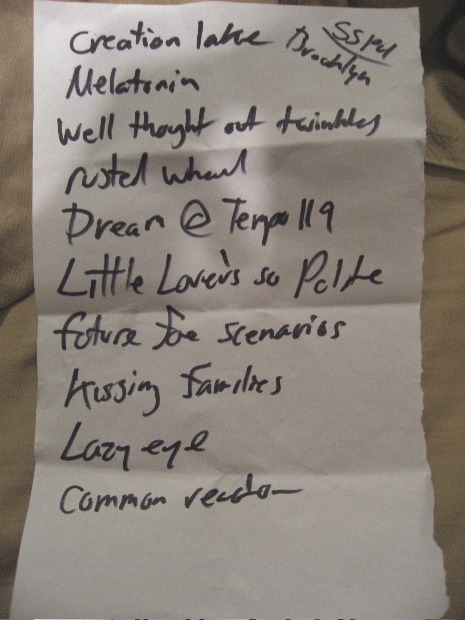 Creation lake
SSPU
Brooklyn
Melatonin
Well thought out twinkles
rusted wheel
Dream @ Tempo 119
Little Lover's so Polite
future foe scenarios
Kissing families
Lazy eye
Common reactor